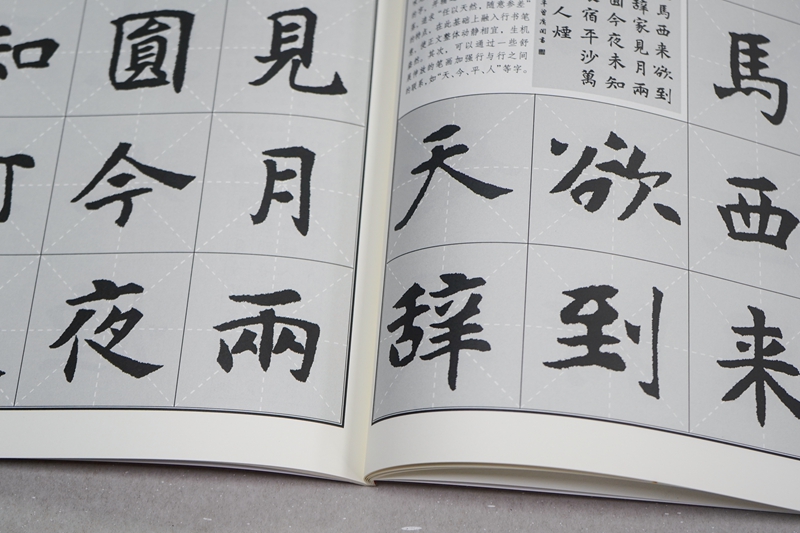 馬西来
欲到
天辞
見月兩
圓今夜
知
馬西来欲到
辭家見月兩
圓今夜未知
宿平沙萬
人煙
追求“任以天然，随意参差”
的特点。在此基础上融入行书笔
意，使正文整体动静相宜、生机
盎然。其次，可以通过一些舒
展伸放的笔画加强行与行之间
的联系，如“天、今、平、人”等字。